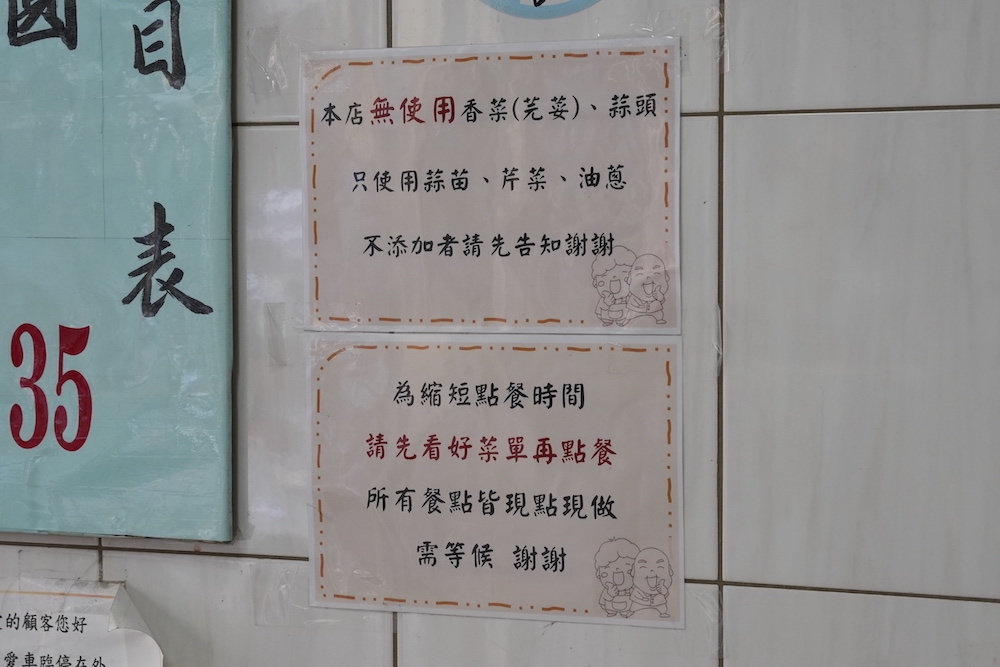 目
表
35
本店無使用香菜(芫荽)、蒜頭
只使用蒜苗、芹菜、油蔥
不添加者請先告知謝謝
為縮短點餐時間
請先看好菜單再點餐
所有餐點皆現點現做
需等候 謝謝
的顧客您好
愛車臨停在外